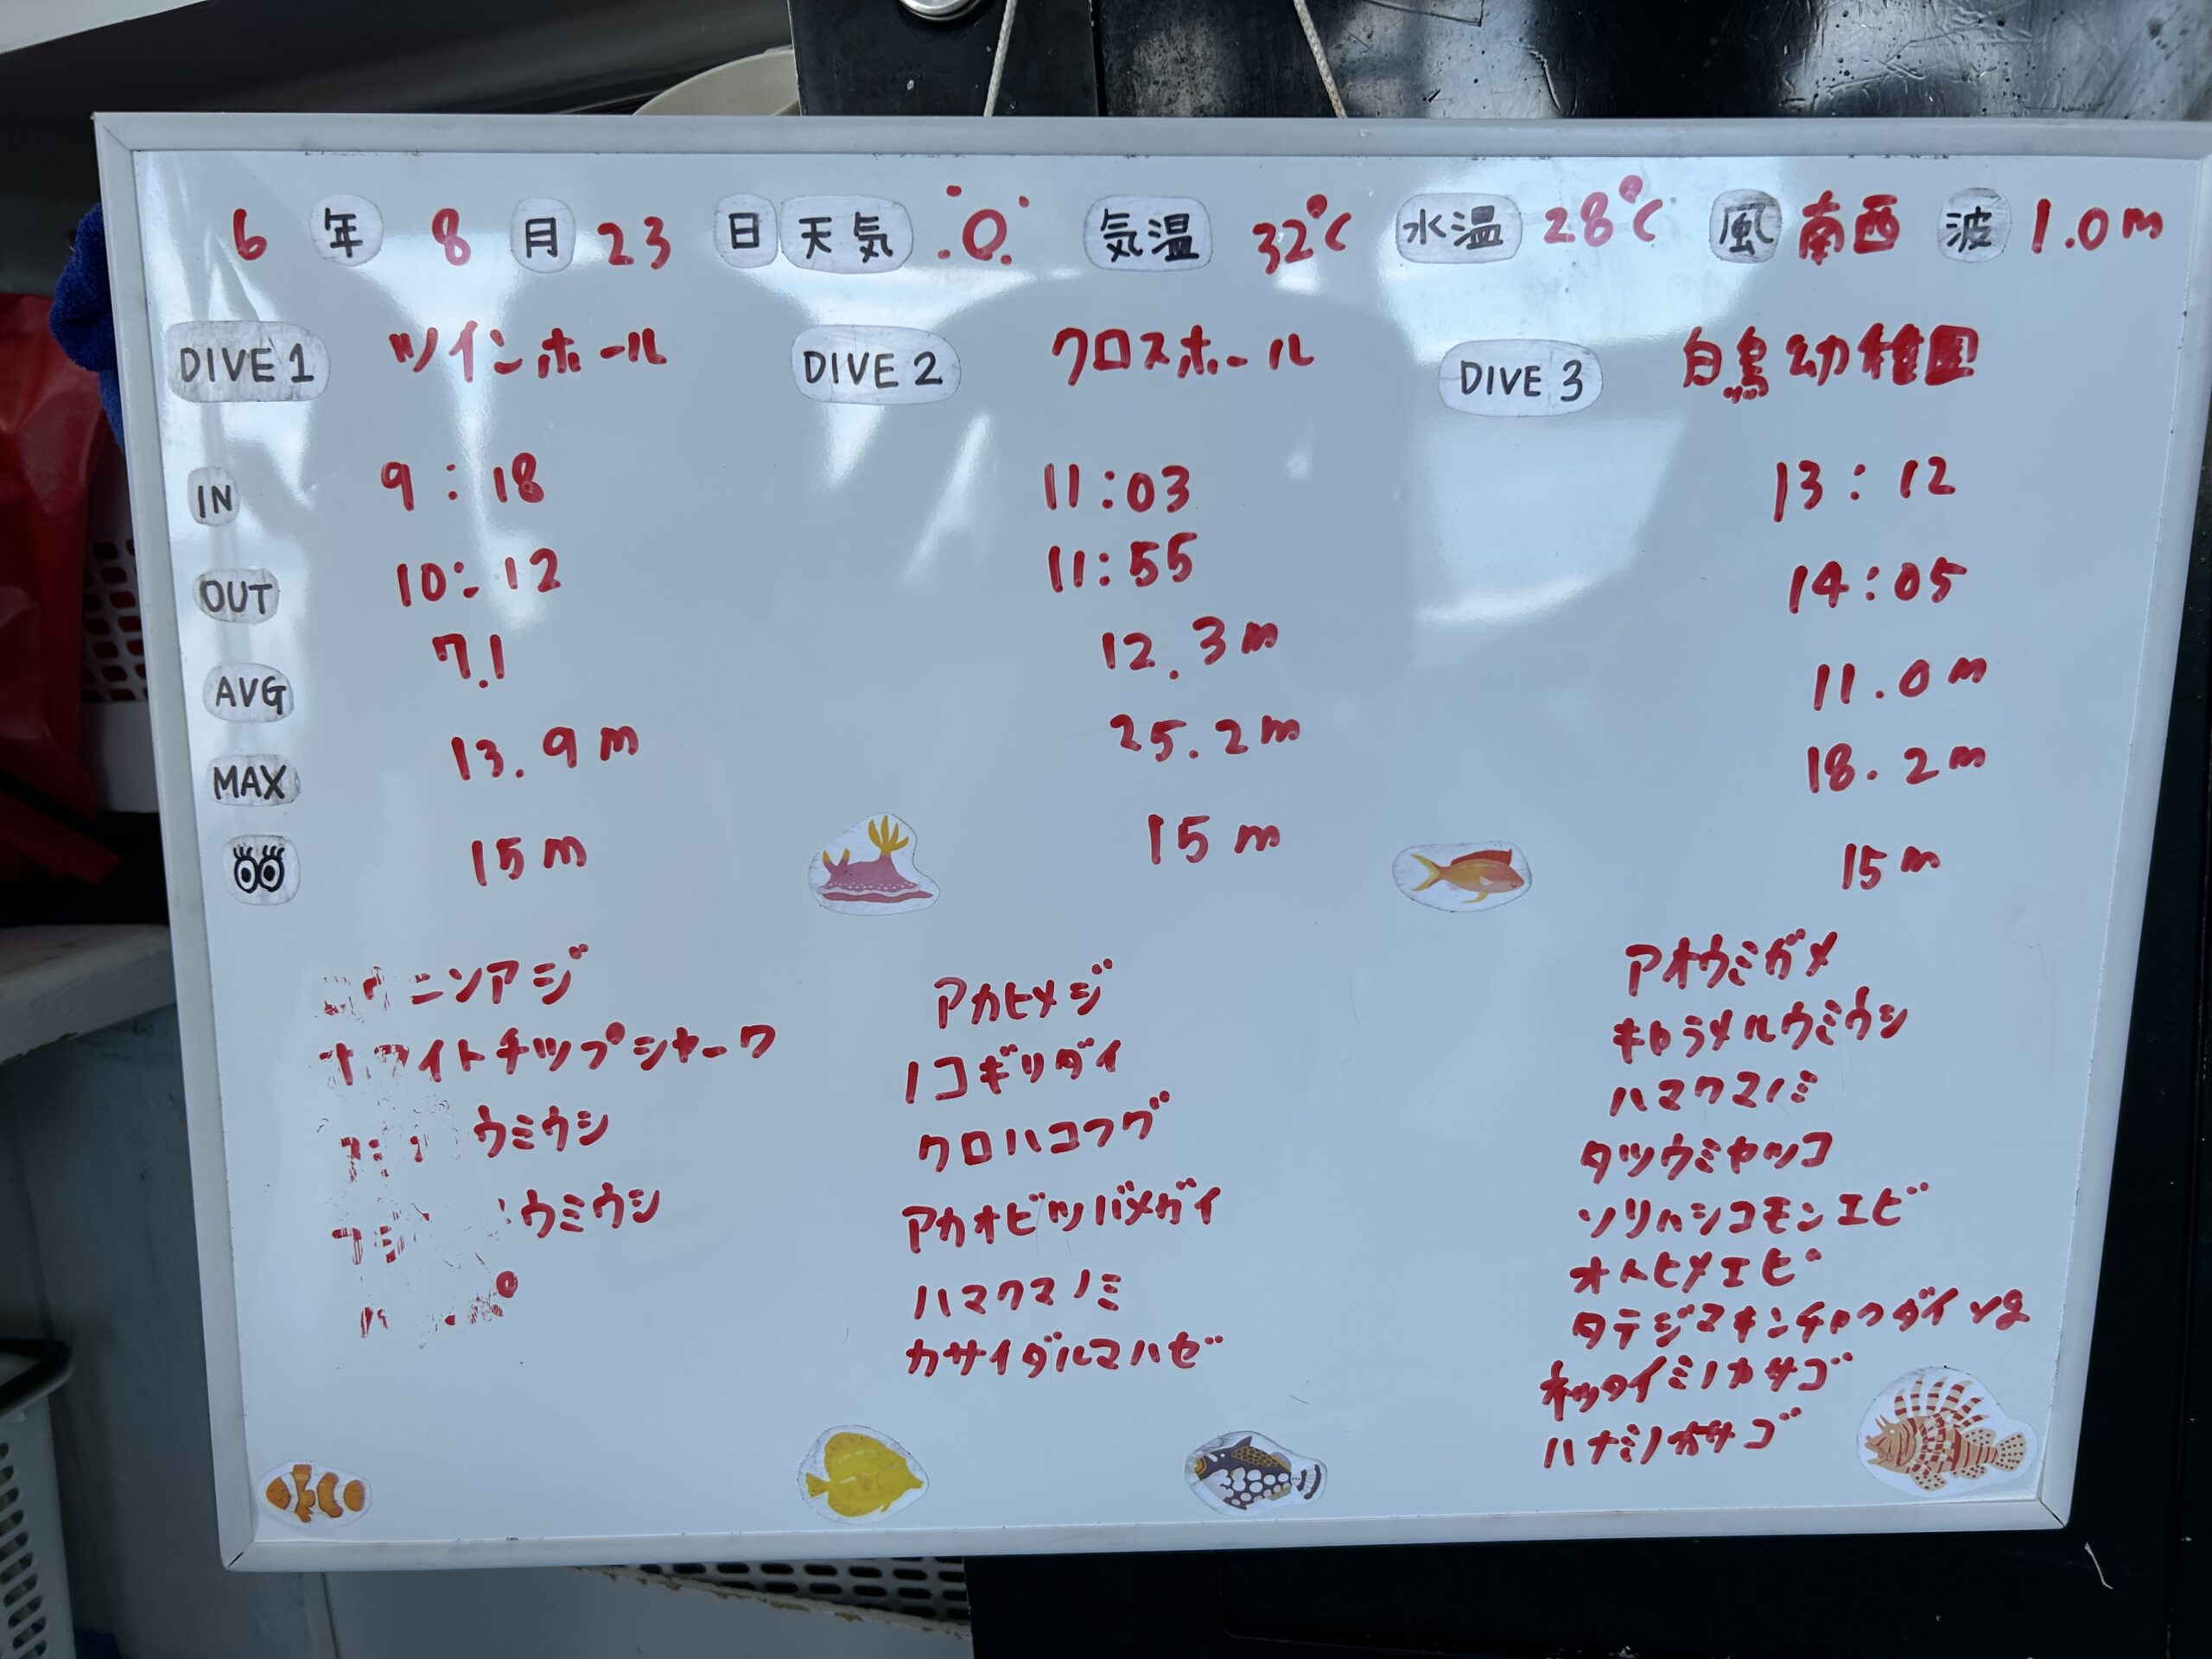 6年 8月 23日 天気 気温 32℃ 水温 28℃ 風 南西 波 1.0m
DIVE 1 ツインホール DIVE 2 クロスホール DIVE 3 白鳥幼稚園
IN 9:18 11:03 13:12
OUT 10:12 11:55 14:05
AVG 7.1 12.3m 11.0m
MAX 13.9m 25.2m 18.2m
15m 15m 15m
ロウニンアジ
ホワイトチップシャーク
ウミウシ
ウミウシ
アカヒメジ
ノコギリダイ
クロハコフグ
アカオビツバメガイ
ハマクマノミ
カサイダルマハゼ
アオウミガメ
キャラメルウミウシ
ハマクマノミ
タツウミヤッコ
ソリハシコモンエビ
オトヒメエビ
タテジマキンチャクダイyg
ネッタイミノカサゴ
ハナミノカサゴ